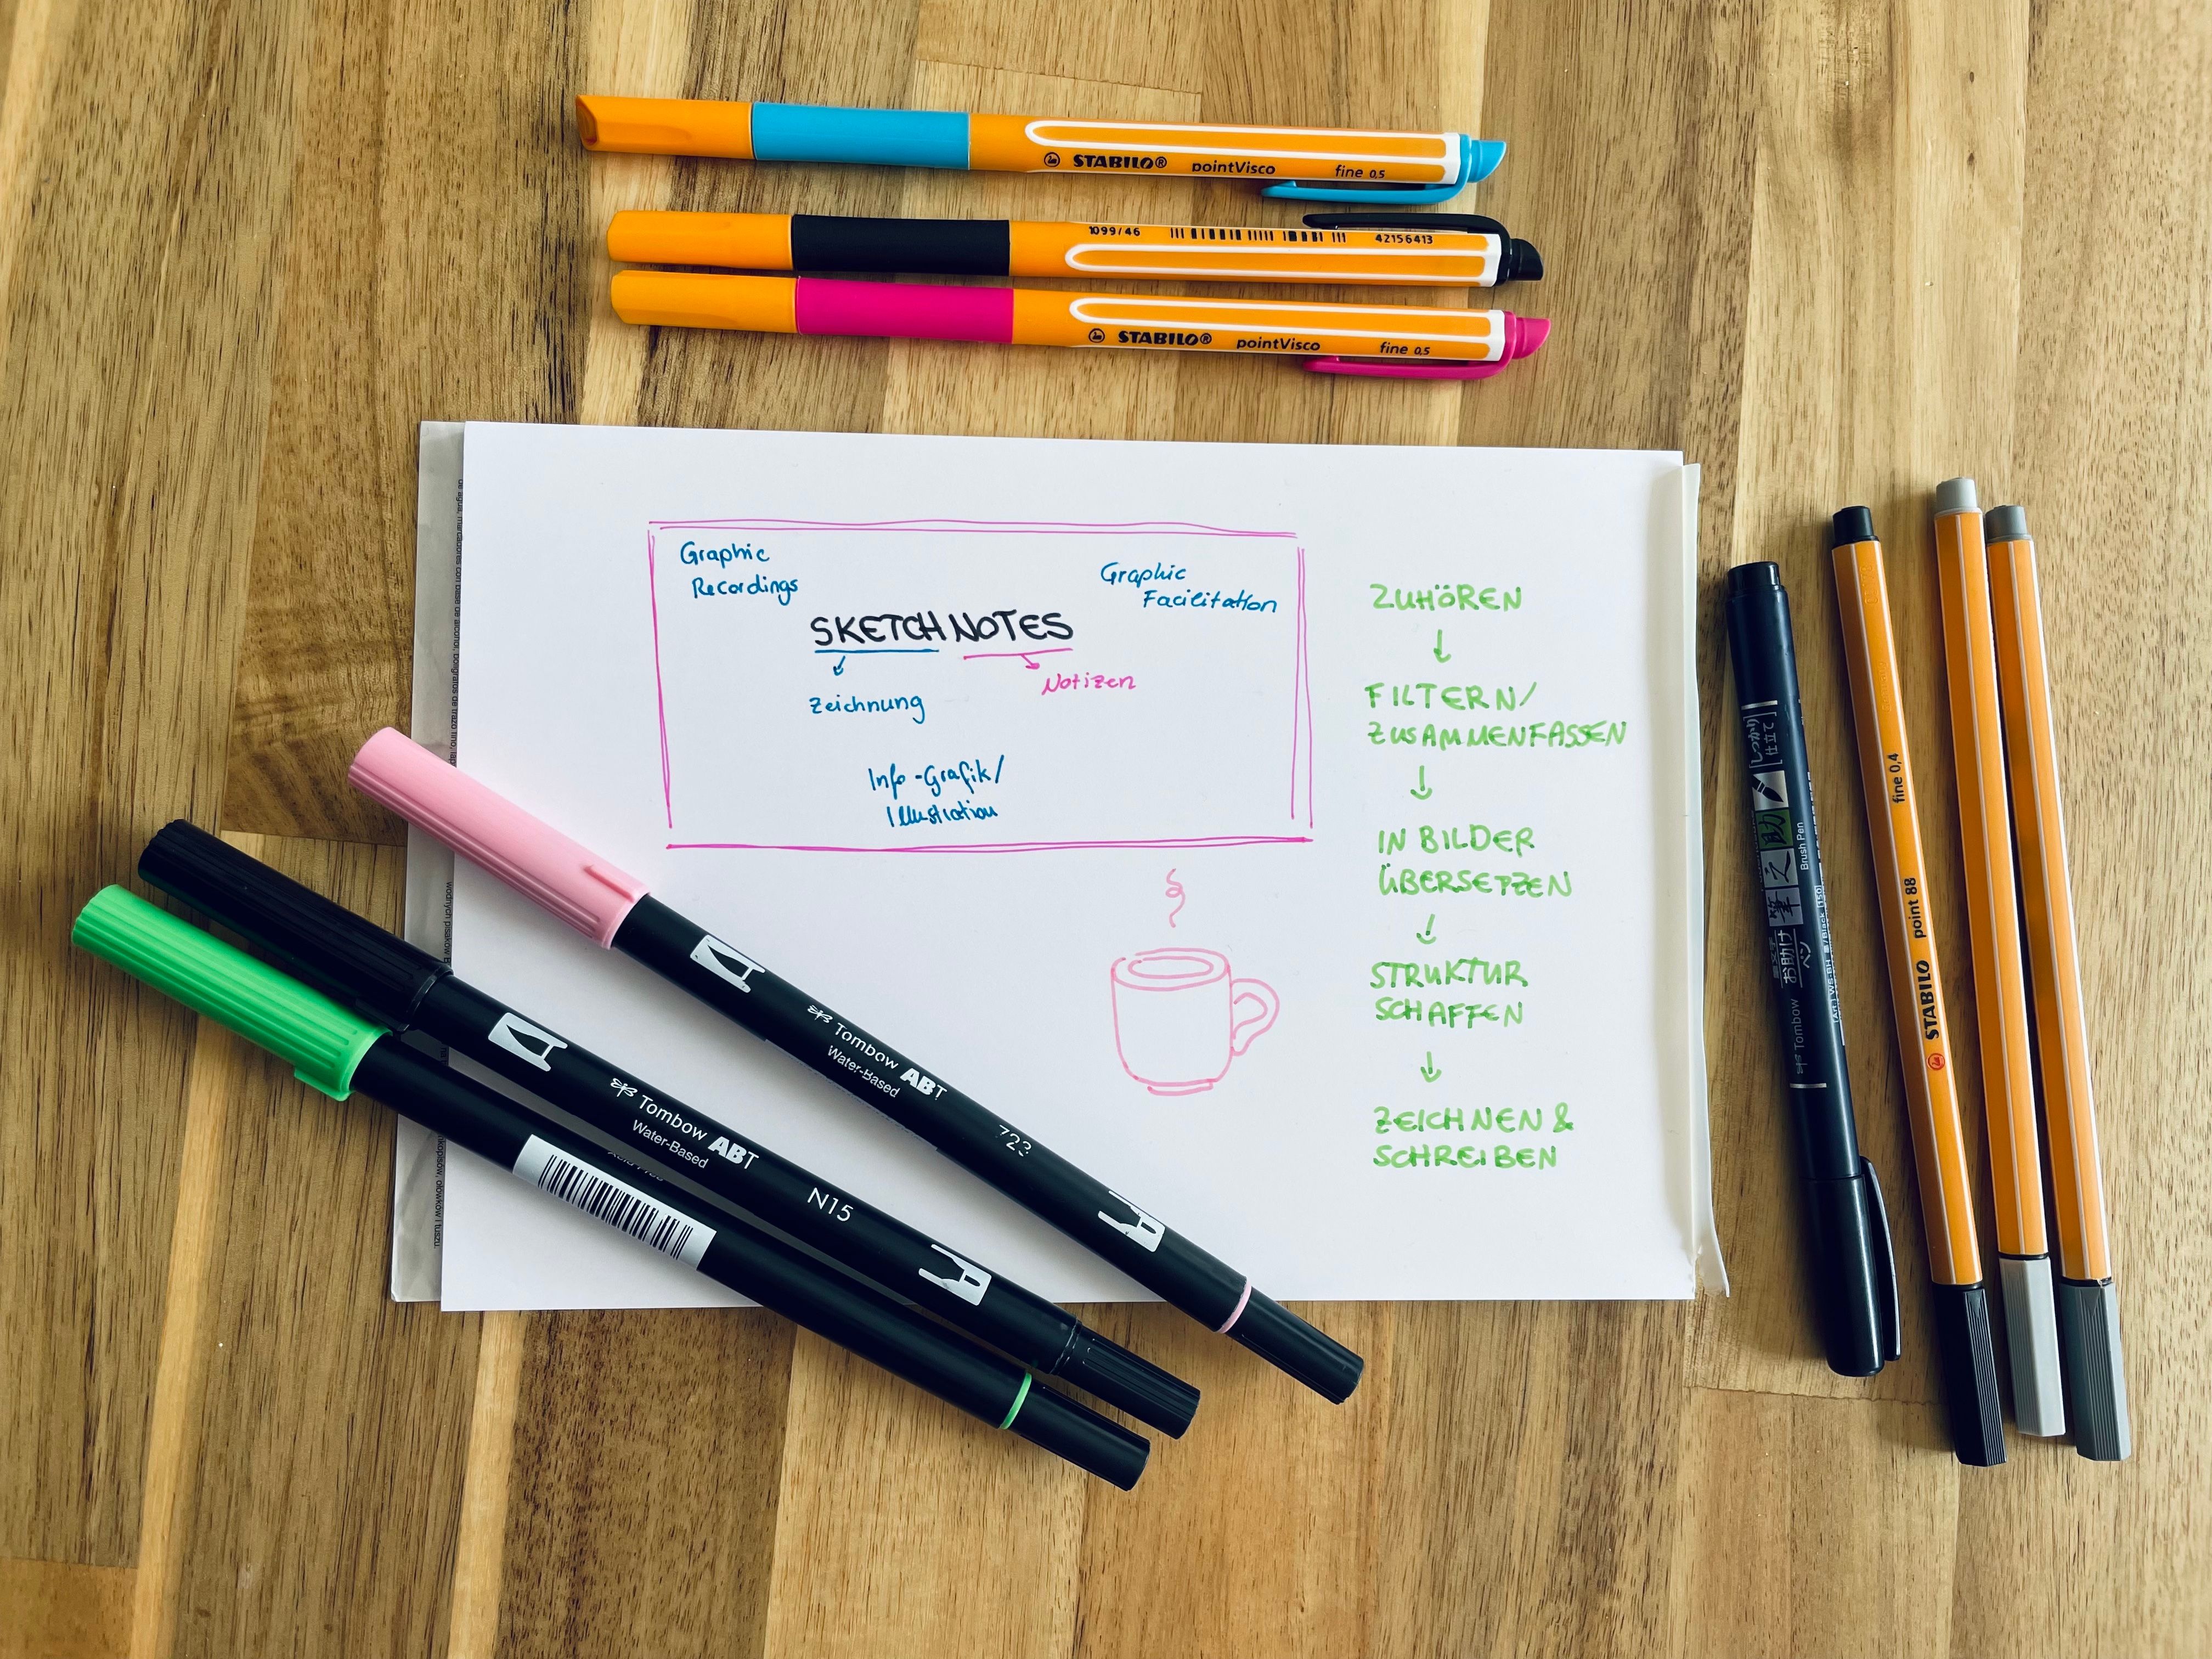 STABILO® pointVisco fine 0,5
1099/46 42156413
STABILO® pointVisco fine 0,5
Graphic
Recordings
Graphic
Facilitation
SKETCHNOTES
Zeichnung
Notizen
Info-Grafik/
Illustration
ZUHÖREN
FILTERN/
ZUSAMMENFASSEN
IN BILDER
ÜBERSETZEN
STRUKTUR
SCHAFFEN
ZEICHNEN &
SCHREIBEN
Tombow ABT
Water-Based
723
Tombow ABT
Water-Based
N15
しっかり
仕立て
筆之助
Brush Pen
お助け
ペン
Tombow
STABILO point 88 fine 0,4